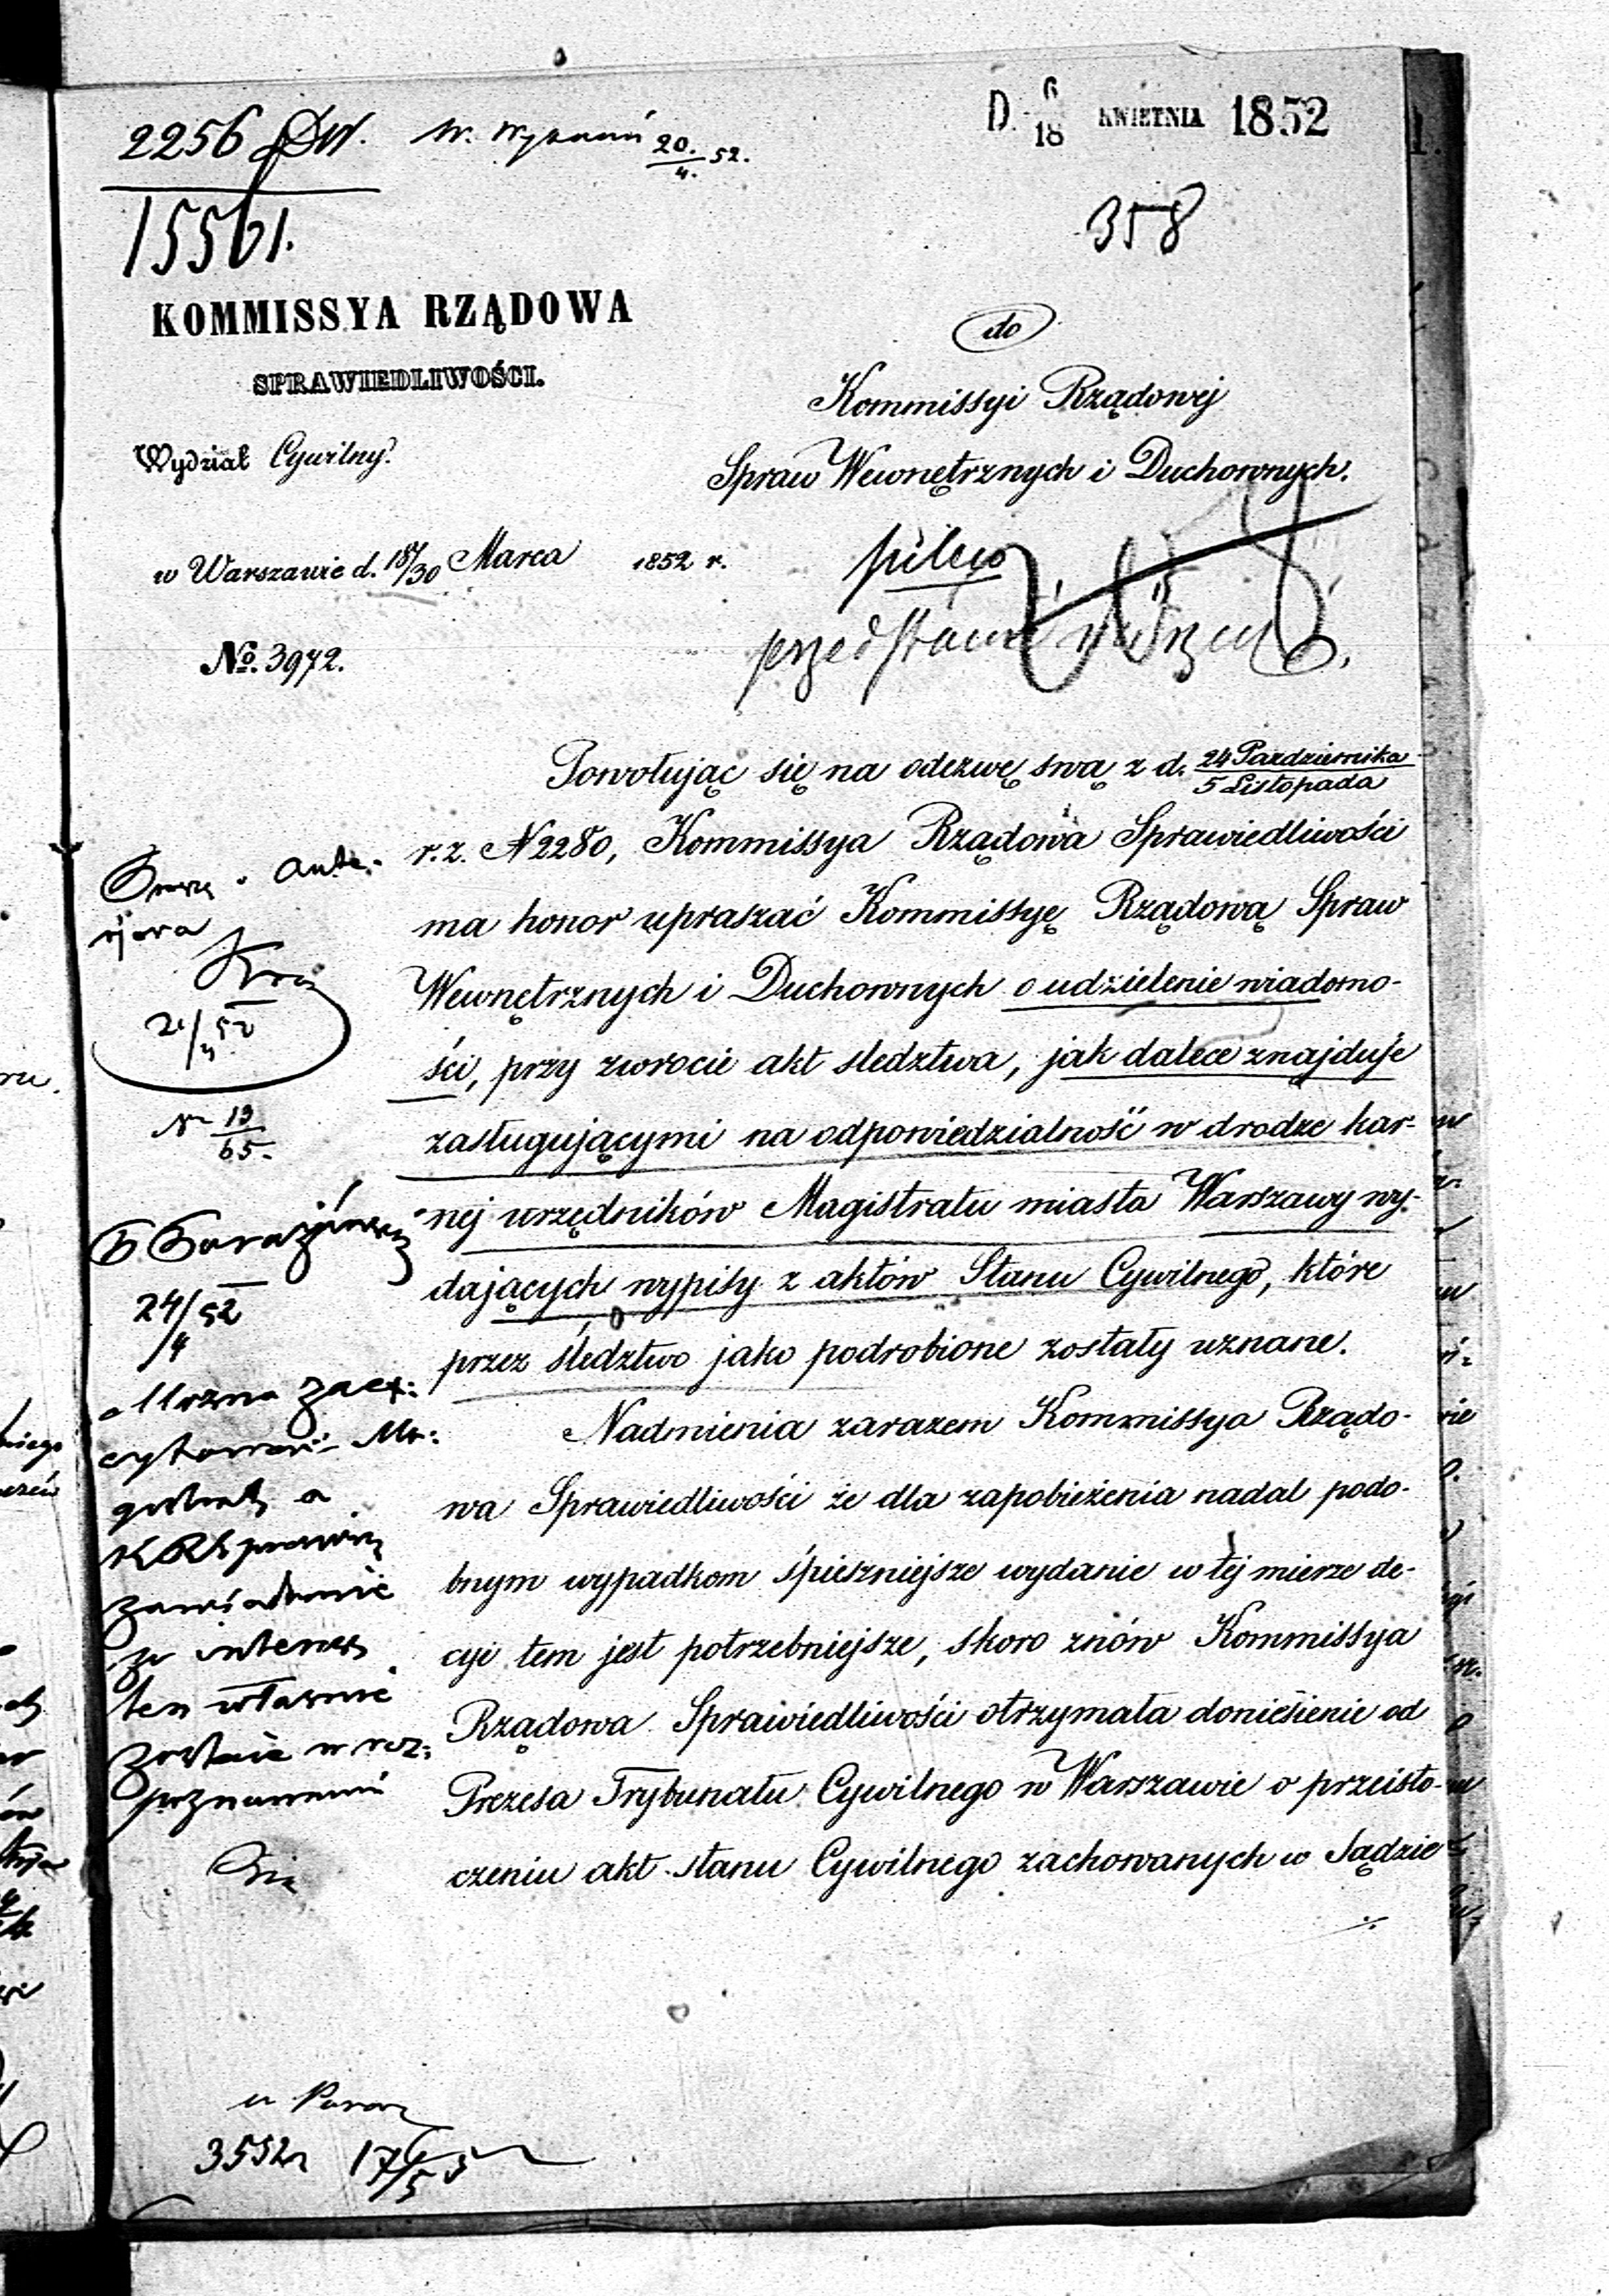 2256
W. Wyznań 20./4. 52.
D. 6/18 KWIETNIA 1852
15561.
358
KOMMISSYA RZĄDOWA
SPRAWIEDLIWOŚCI.
do
Kommissyi Rządowej
Spraw Wewnętrznych i Duchownych.
Wydział Cywilny.
w Warszawie d. 18/30 Marca 1852 r.
pilno
przedstawić
No. 3972.
Powołując się na odezwę swą z d. 24 Pazdziernika / 5 Listopada
r. z. N 2280, Kommissya Rządowa Sprawiedliwości
ma honor upraszać Kommissyę Rządową Spraw
Wewnętrznych i Duchownych o udzielenie wiadomo-
ści, przy zwrocie akt sledztwa, jak dalece znajduje
zasługującymi na odpowiedzialność w drodze kar-
nej urzędników Magistratu miasta Warszawy wy-
dających wypisy z aktów Stanu Cywilnego, które
przez śledztwo jako podrobione zostały uznane.
Nadmienia zarazem Kommissya Rządo-
wa Sprawiedliwości że dla zapobieżenia nadal podo-
bnym wypadkom śpieszniejsze wydanie w tej mierze de-
cyi tem jest potrzebniejsze, skoro znów Kommissya
Rządowa Sprawiedliwości otrzymała doniesienie od
Prezesa Trybunału Cywilnego w Warszawie o przeisto-
czeniu akt stanu Cywilnego zachowanych w Sądzie
./.
N 19/65.
24/4 52
Można
zawiadomić
że interes
ten właśnie
zostaje w roz:
poznawaniu